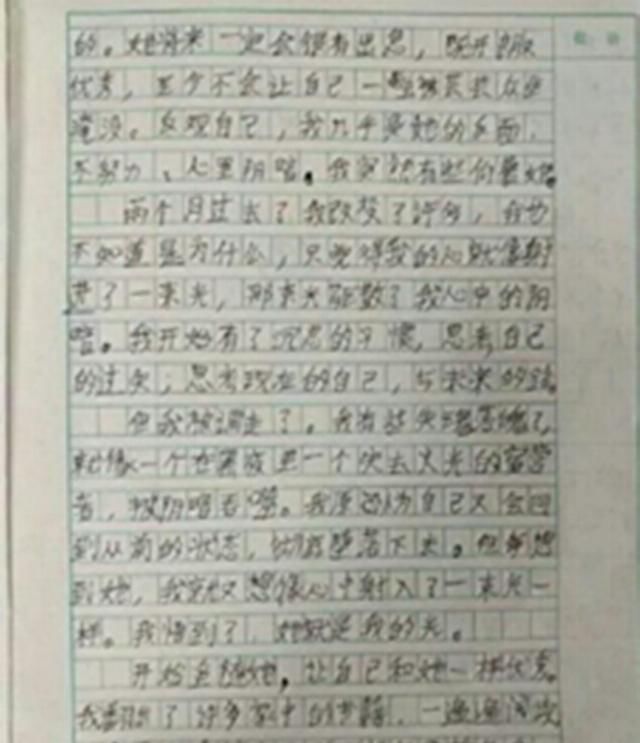 的。她将来一定会很有出息，既开朗
优秀，至少不会让自己一点被芸芸众生
淹没。反观自己，我几乎是她的反面，
不努力、心里阴暗。我突然有些仰慕她。
两个月过去了我改变了许多，我也
不知道是为什么，只觉得我的心就像射
进了一束光，那束光驱散了我心中的阴
暗。我开始有了沉思的习惯，思考自己
的过失；思考现在的自己，与未来的路。
但我被调走了。我有些失魂落魄了，
就像一个在黑夜里一个失去火光的宿营
者，被阴暗吞噬。我原以为自己又会回
到从前的状态，彻底堕落下去。但每想
到她，我就又想像心中射入了一束光一
样。我悟到了，她就是我的光。
开始追随她，让自己和她一样优秀。
我翻阅了许多家中的书籍，一遍遍阅读